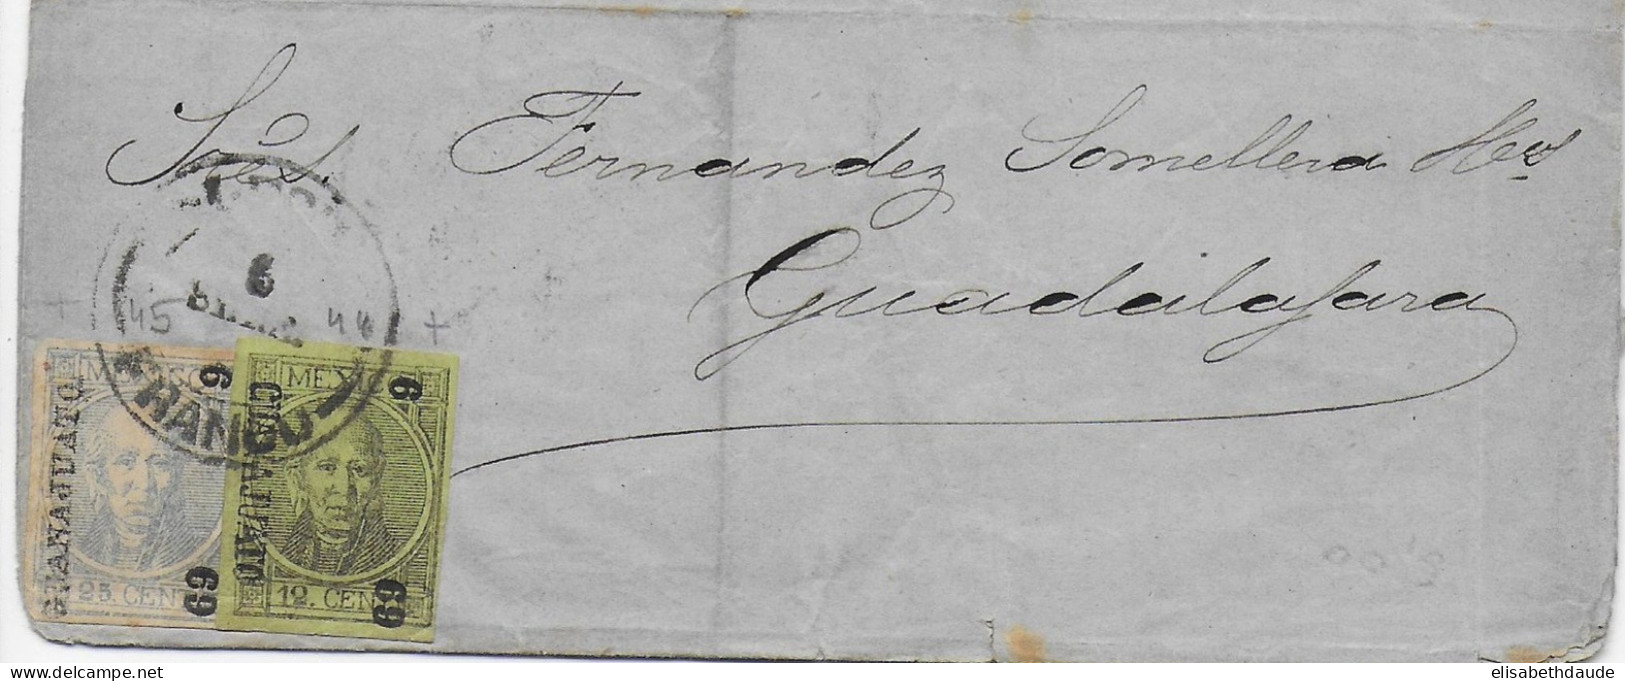 Sres. Fernandez Somellera Hos
Guadalajara
6
45
44
FRANCO
MEXICO
6
GUANAJUATO
25. CENT
69
MEXICO
6
GUANAJUATO
12. CEN
69
elisabethdaude